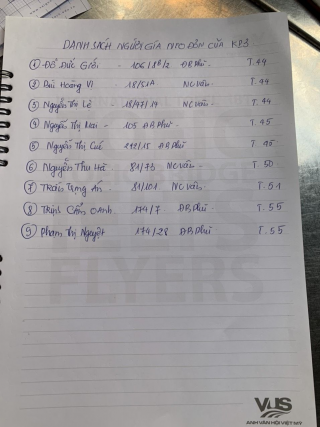 DANH SÁCH NGƯỜI GIÀ NEO ĐƠN CỦA KP3
① Đỗ Đức Giỏi - 106/18/2 ĐBPhủ - T.44
② Bùi Hoàng Vi 18/51A NCVấn. T.44
③ Nguyễn Thị Lê - 18/47/14 NCVấn - T.44
④ Nguyễn Thị Mai - 105 ĐBPhủ - T.45
⑤ Nguyễn Thị Cuế 212/15 ĐBPhủ T.45
⑥ Nguyễn Thu Hà. 81/73 NCVấn - T.50
⑦ Trần Ưng Ấn. 81/101 NCVấn. T.51
⑧ Trịnh Cẩm Oanh. 174/7 ĐBPhủ T.55
⑨ Phạm Thị Nguyệt 174/28 ĐBPhủ T.55
FLYERS
VUS
ANH VĂN HỘI VIỆT MỸ